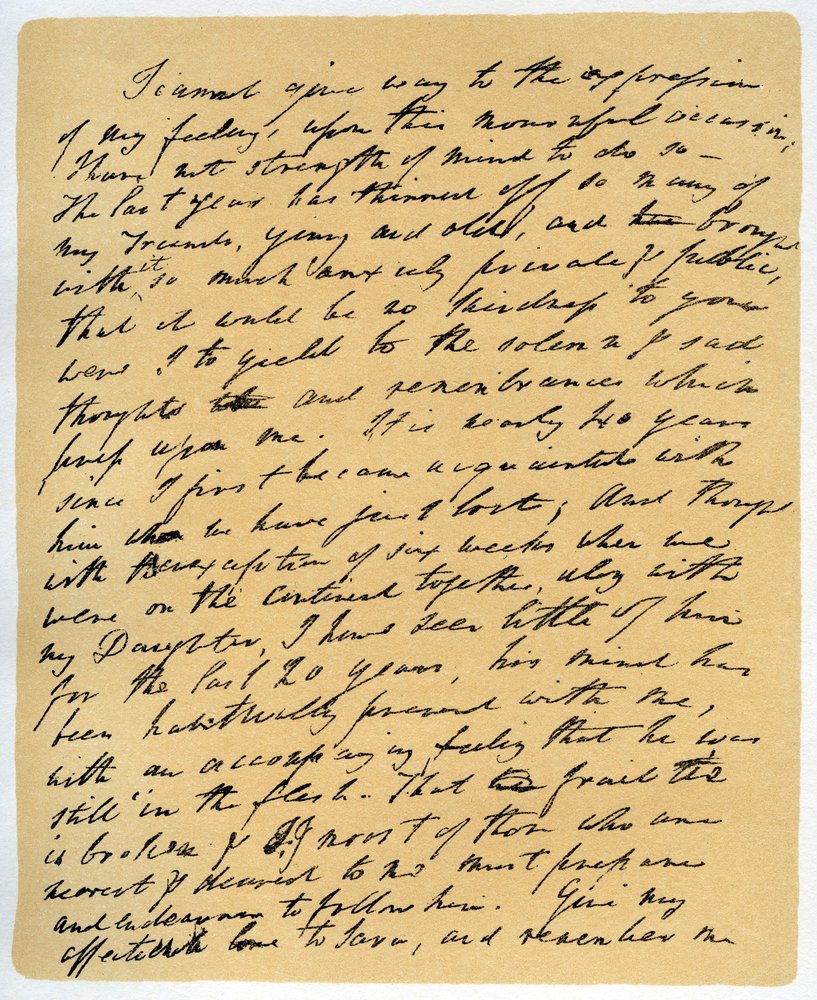 I cannot give way to the expression
of my feelings upon this mournful occasion;
I have not strength of mind to do so —
The last year has thinned off so many of
my Friends, young and old, and brought
with it so much anxiety private & public,
that it would be no kindness to you
were I to yield to the solemn & sad
thoughts and remembrances which
press upon me. It is nearly 40 years
since I first became acquainted with
him whom we have just lost; and though
with the exception of six weeks when we
were on the continent together, along with
my Daughter, I have seen little of him
for the last 20 years, his mind has
been habitually present with me,
with an accompanying feeling that he was
still in the flesh. That frail tie
is broken & I & most of those who are
nearest & dearest to me must prepare
and endeavour to follow him. Give my
affectionate love to Sara, and remember me